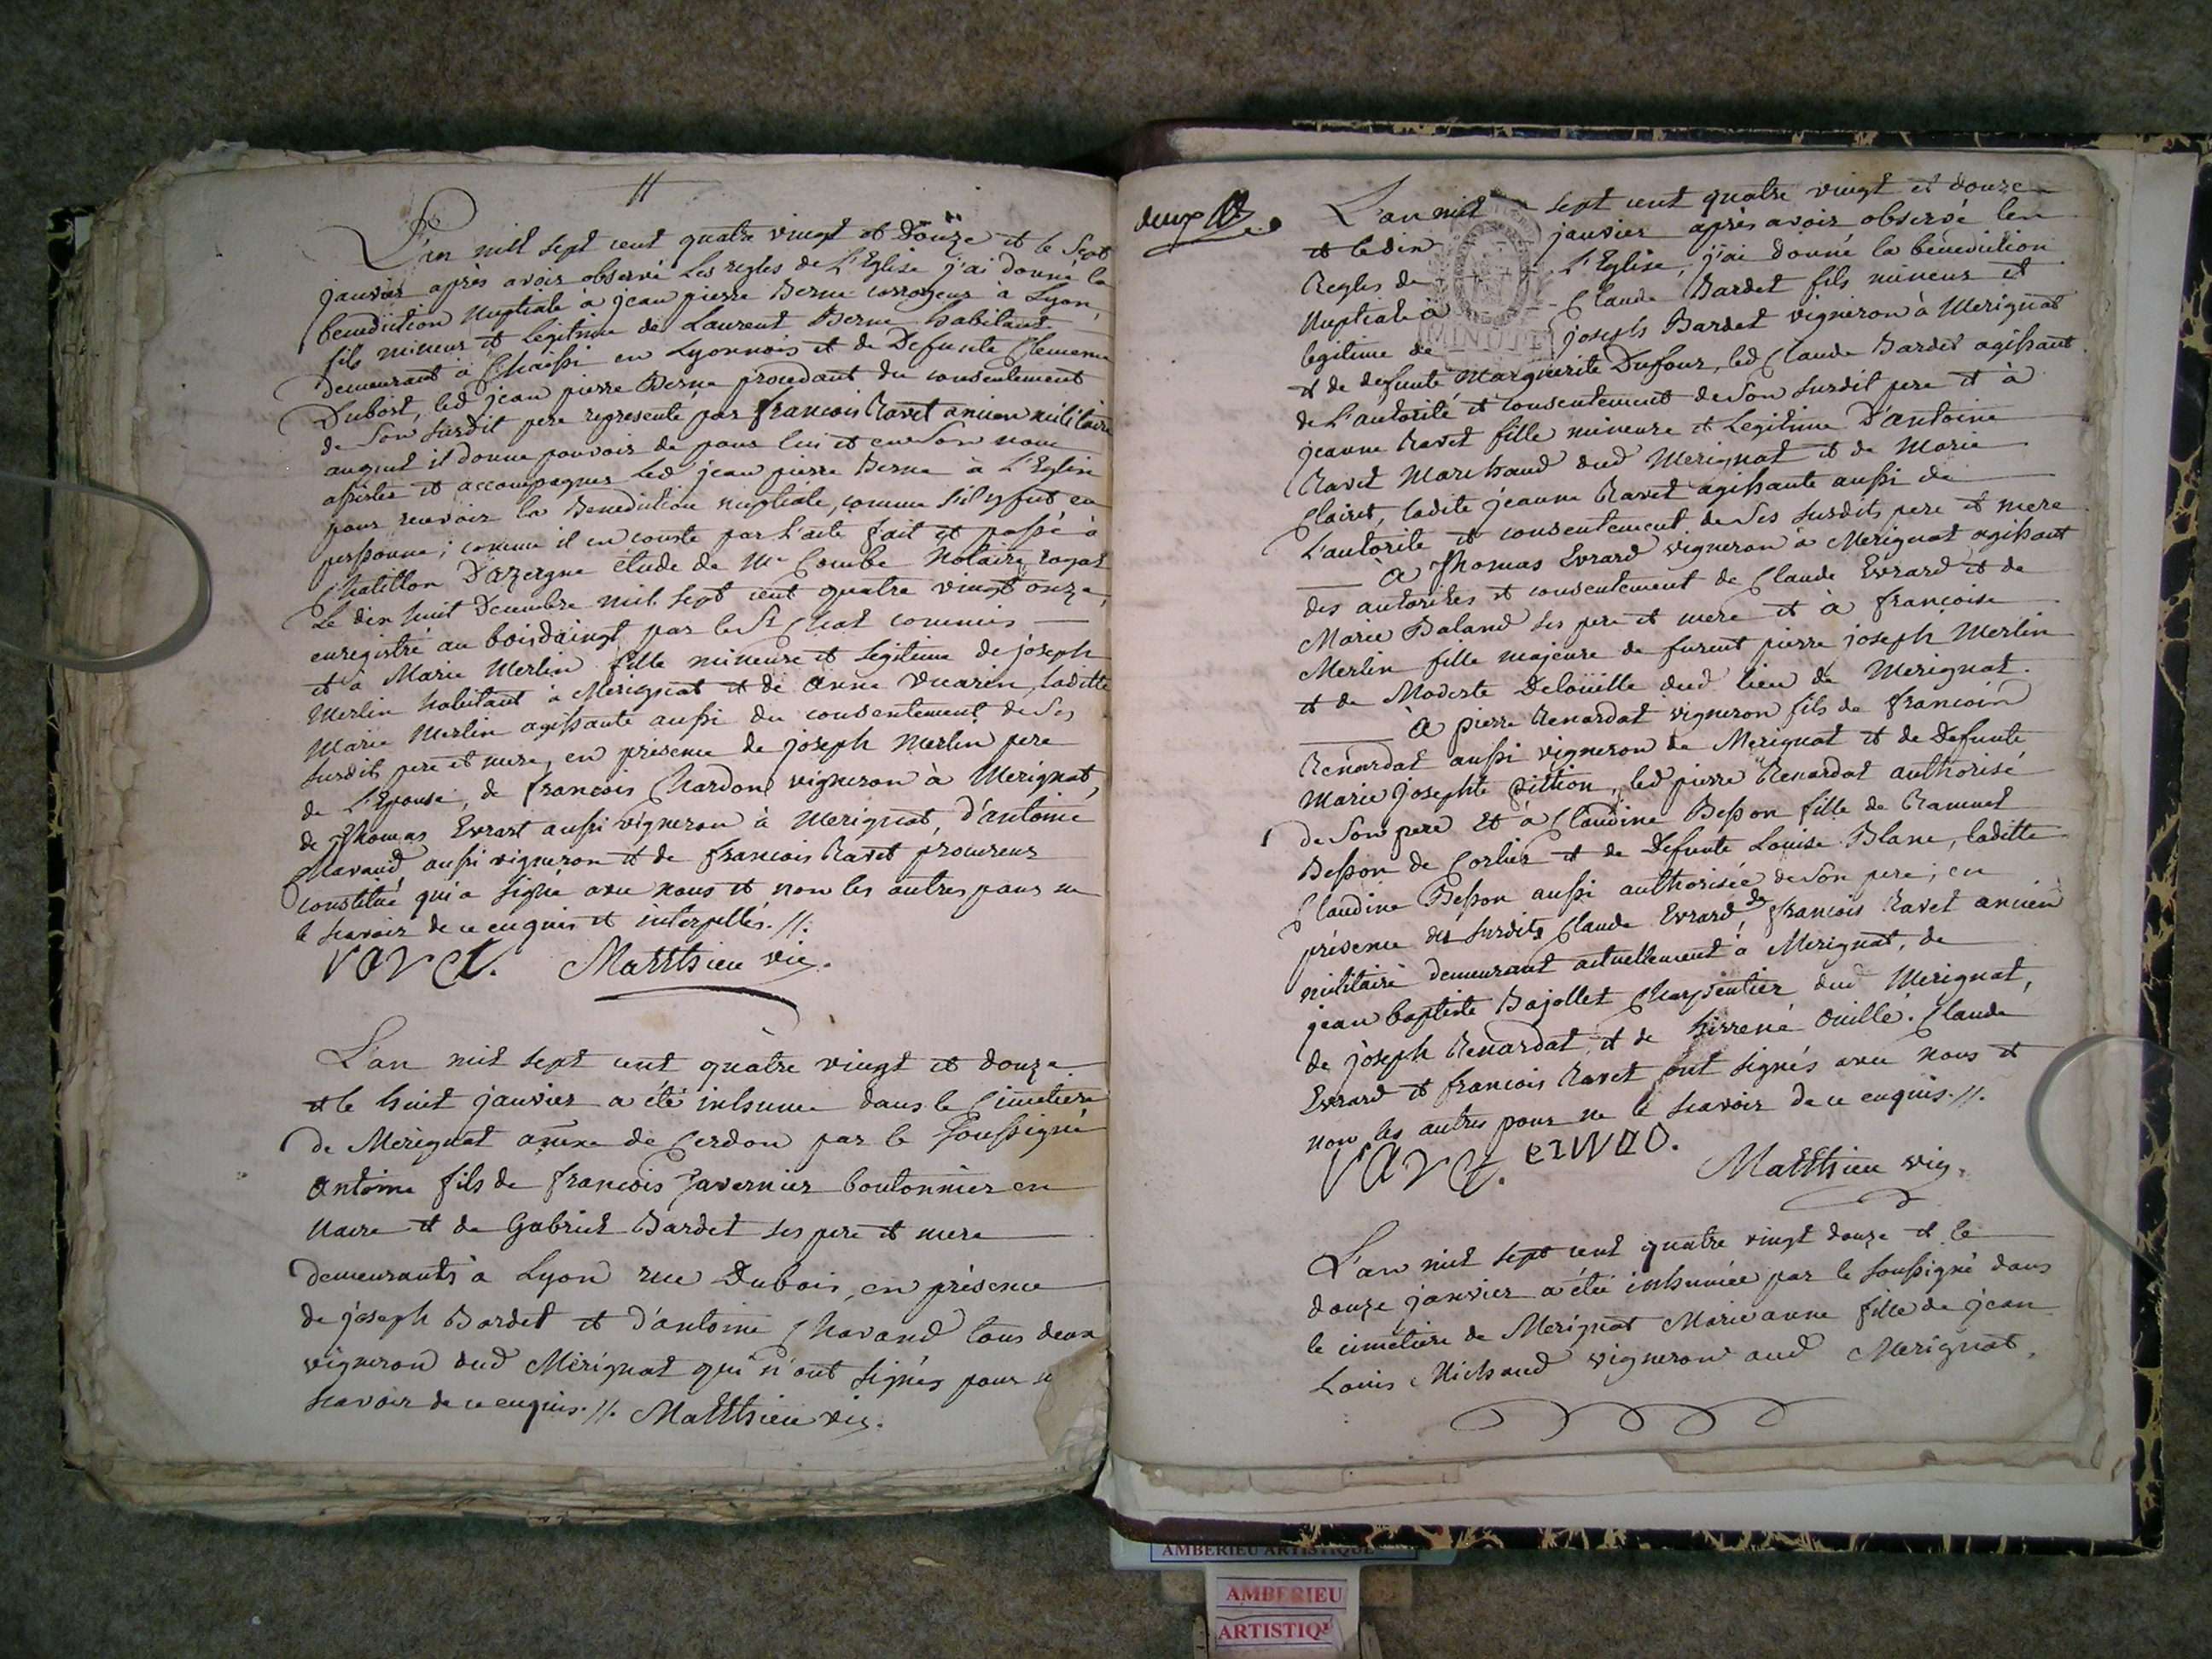 L'an mil sept cent quatre vingt et Douze et le Sept
janvier après avoir observé Les regles de L'Eglise j'ai donné la
benediction Nuptiale à jean pierre Berne corroyeur à Lyon,
fils mineur et Legitime de Laurent Berne habitant
demeurant à Chaissi en Lyonnois et de Defunte Clemence
Dubost, led jean pierre Berne procedant du consentement
de Son Susdit pere representé par francois Ravet ancien militaire
auquel il donne pouvoir de pour lui et en Son nom
assister et accompagner led jean pierre Berne à L'Eglise
pour recevoir la Benediction nuptiale, comme s'il y fut en
perssonne; comme il en conste par L'acte fait et passé à
Chatillon D'azergue étude de Me Combe Notaire royal
Le dix huit Decembre mil sept cent quatre vingt onze,
enregistré au boisdaingt par le Sr Chat commis
et à Marie Merlin fille mineure et Legitime de joseph
Merlin habitant à Merignat et de Anne Vuarin, laditte
Marie Merlin agissante aussi du consentement de Ses
Susdits pere et mere, en présence de joseph Merlin pere
de L'Epouse, de francois Chardon vigneron à Merignat,
de Thomas Evrart aussi vigneron à Merignat, d'antoine
Chavand aussi vigneron et de francois Ravet procureur
constitué qui a signé avec nous et non les autres pour ne
le scavoir de ce enquis et interpellés. //.
ravet. Matthieu vic.
L'an mil sept cent quàtre vingt et douze
et le huit janvier a été inhumé dans le Cimetiere
de Merignat anexe de Cerdon par le Soussigné
Antoine fils de francois Tavernier boutonnier en
Nacre et de Gabriel Bardet ses pere et mere
demeurants à Lyon rue Dubois, en présence
de joseph Bardet et d'antoine Chavand tous deux
vigneron dud Mérignat qui n'ont signés pour ne
scavoir de ce enquis. //. Matthieu vic.
deux
L'an mil sept cent quatre vingt et douze
et le dix janvier après avoir observé les
Regles de L'Eglise, j'ai donné la bénediction
Nuptiale à Claude Bardet fils mineur et
legitime de joseph Bardet vigneron à Merignat
MINUTE
et de defunte Marguerite Dufour, led Claude Bardet agissant
de L'autorité et consentement de Son susdit pere et à
jeanne Ravet fille mineure et Legitime D'antoine
Ravet Marchand dud Merignat et de Marie
Clairet, ladite jeanne Ravet agissante aussi de
L'autorité et consentement de Ses susdits pere et mere
À Thomas Evrard vigneron à Merignat agissant
des autorités et consentement de Claude Evrard et de
Marie Baland ses pere et mere et à francoise
Merlin fille majeure de furent pierre joseph Merlin
et de Modeste Deloüille dud lieu de Merignat.
À pierre Renardat vigneron fils de francois
Renardat aussi vigneron de Merignat et de Defunte
Marie josephte Pittion, led pierre Renardat authorisé
de Son pere Et à Claudine Besson fille de Ramuel
Besson de Corlier et de Defunte Louise Blanc, laditte
Claudine Besson aussi authorisée de Son pere; en
présence des susdits Claude Evrard, de francois Ravet ancien
militaire demeurant actuellement à Merignat, de
jean baptiste Bajollet Charpentier dud Merignat,
de joseph Renardat, et de hirrené ouillé. Claude
Evrard et francois Ravet ont signés avec nous et
non les autres pour ne le scavoir de ce enquis. //.
ravet. Matthieu vic.
L'an mil sept cent quatre vingt douze et le
douze janvier a été inhumée par le soussigné dans
le cimetiere de Merignat Marie anne fille de jean
Louis Michaud vigneron aud Merignat,
AMBERIEU ARTISTIQUE
AMBERIEU
ARTISTIQ